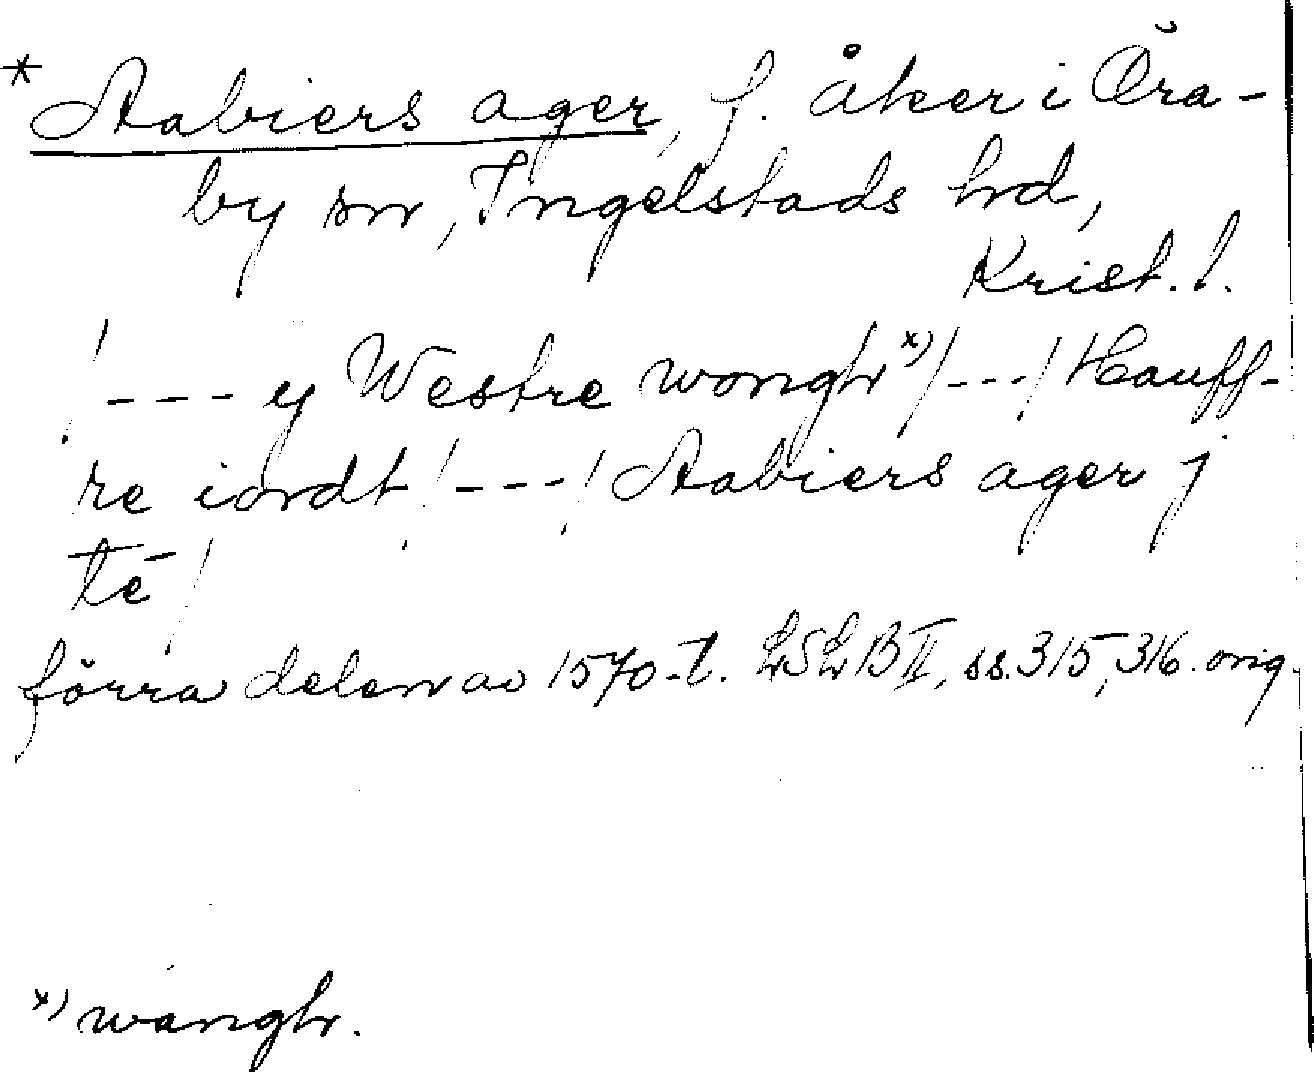 * Aabiers ager, f. åker i Öra-
by sn, Ingelstads hd,
Krist. l.
/---y Westre wongh x)/---/ Hauff-
re iordt /---/ Aabiers ager j
té /
förra delen av 1570-t. LSLB II, ss. 315, 316. orig.
x) wangh.